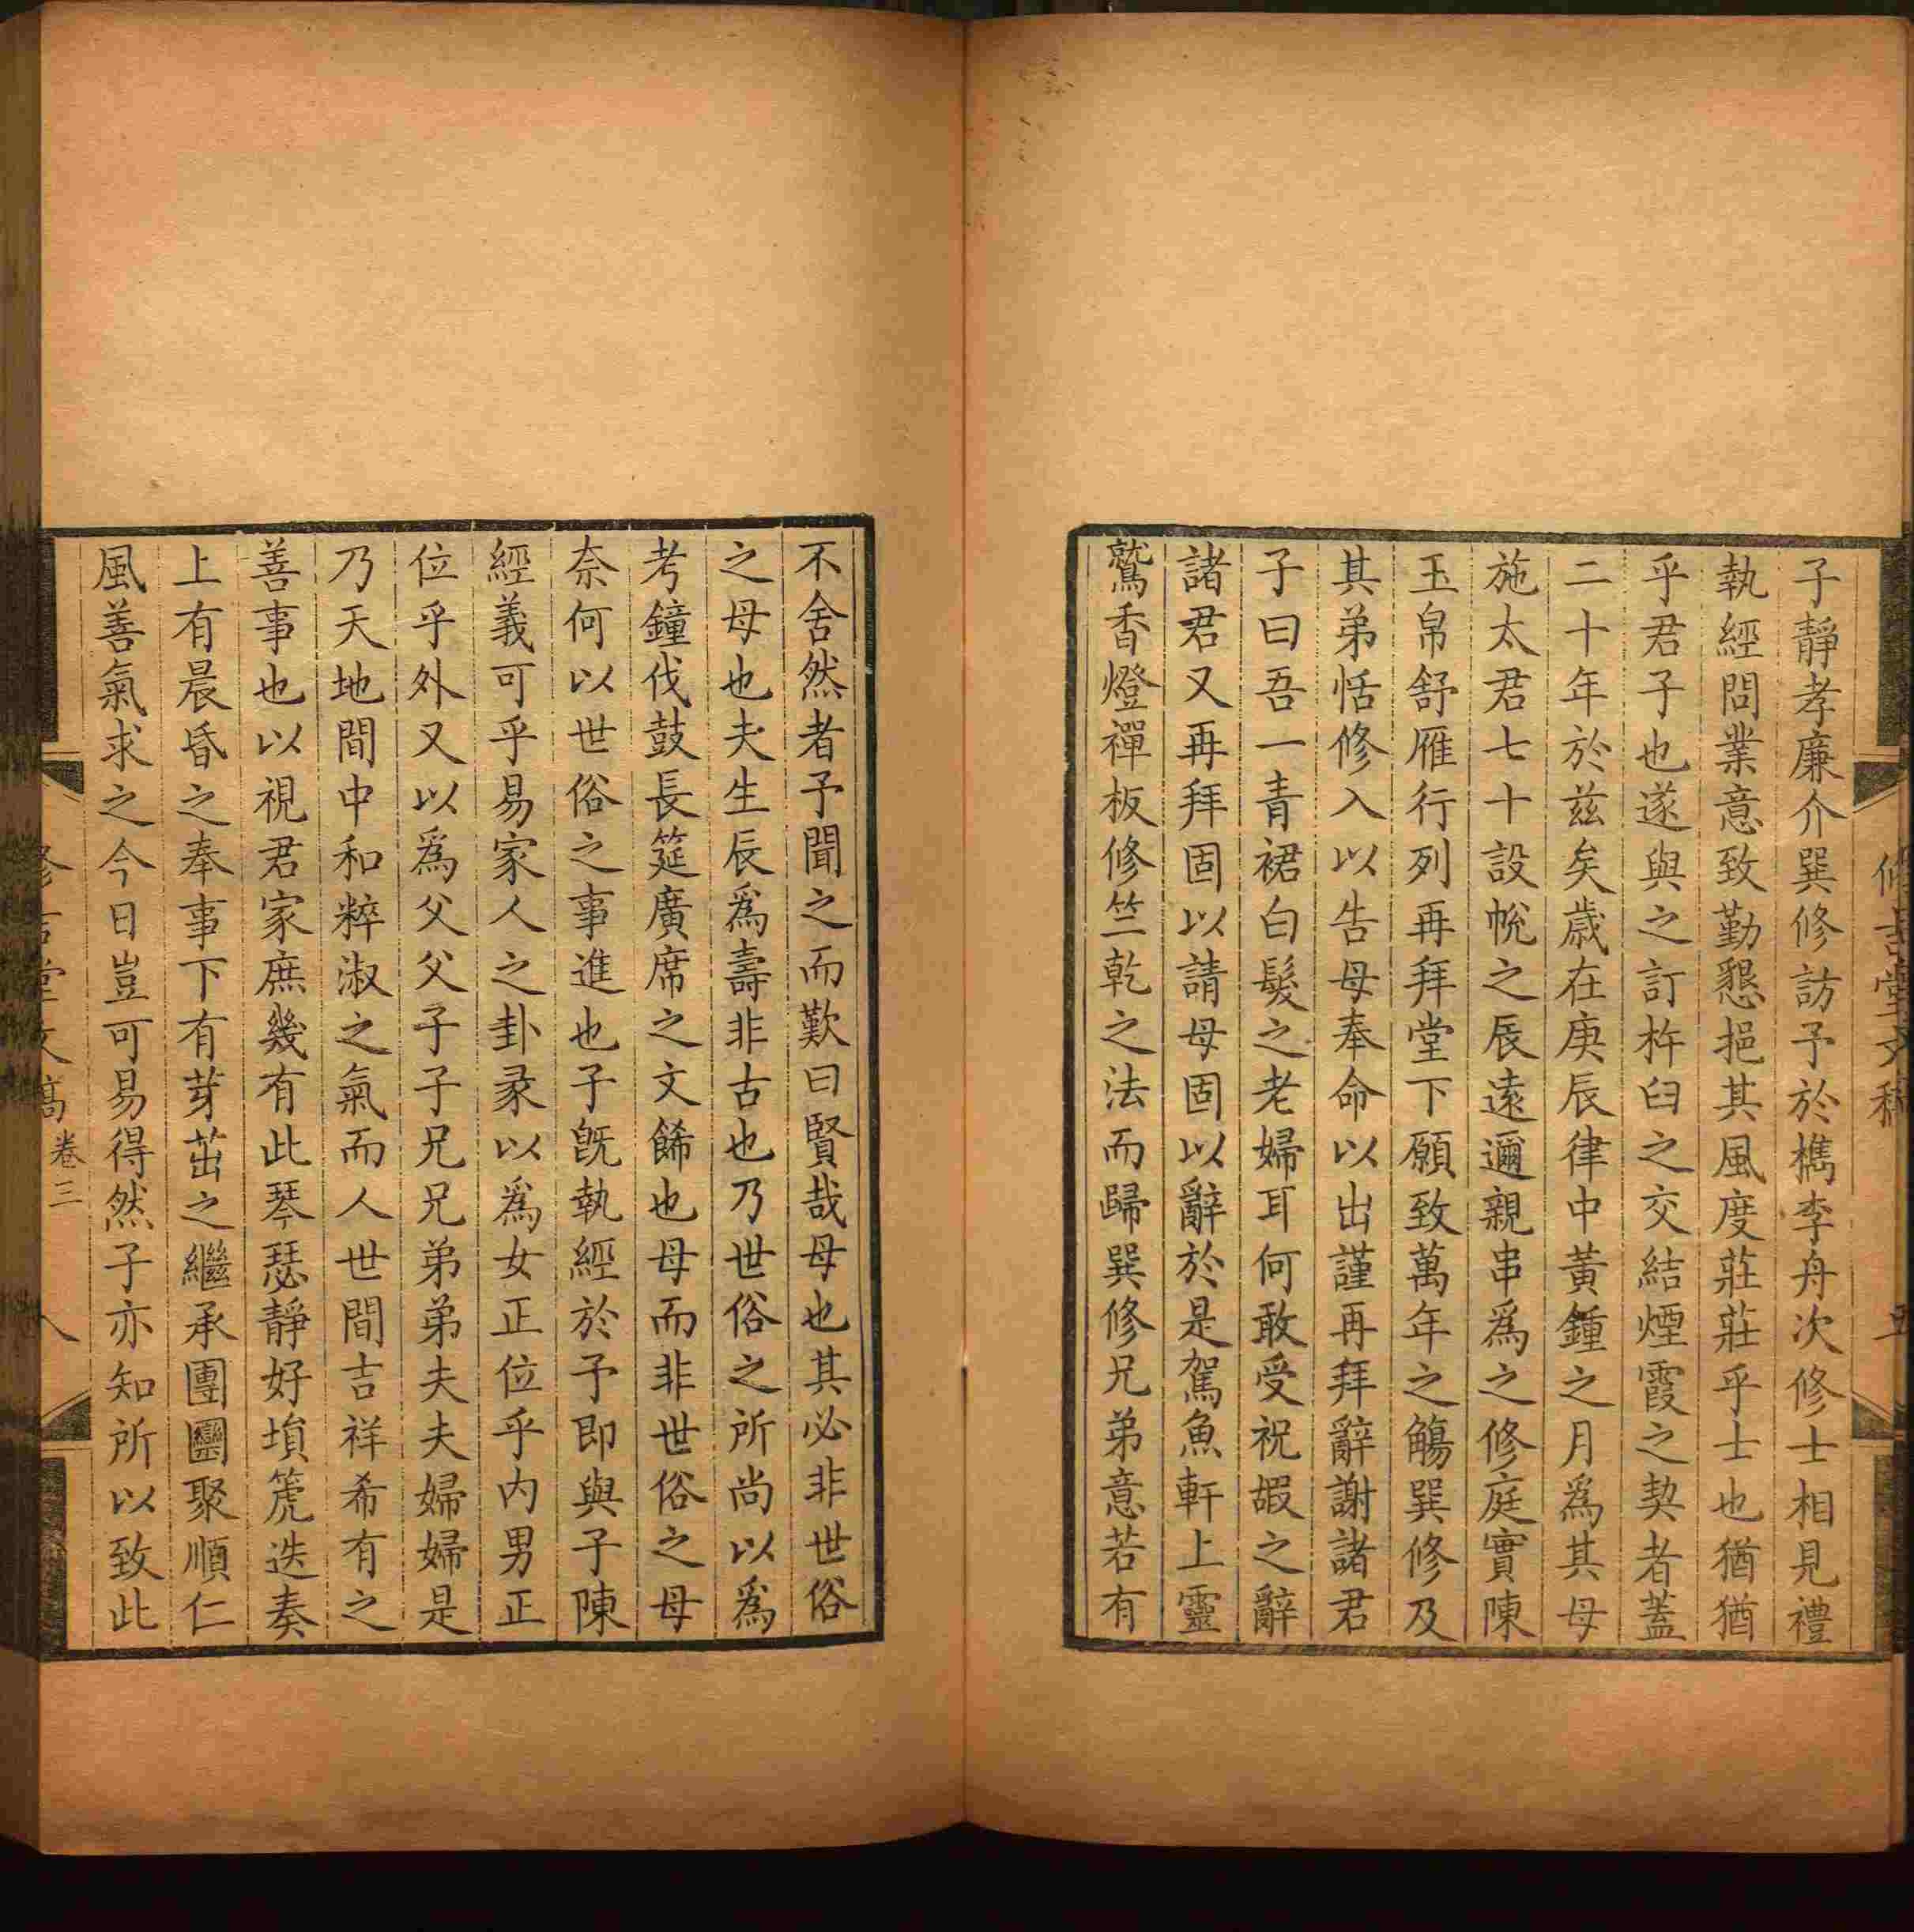 子靜孝廉介巽修訪予於檇李舟次修士相見禮
執經問業意致勤懇挹其風度莊莊乎士也猶猶
乎君子也遂與之訂杵臼之交結煙霞之契者蓋
二十年於茲矣歲在庚辰律中黃鍾之月爲其母
施太君七十設帨之辰遠邇親串爲之修庭實陳
玉帛舒雁行列再拜堂下願致萬年之觴巽修及
其弟恬修入以告母奉命以出謹再拜辭謝諸君
子曰吾一青裙白髮之老婦耳何敢受祝嘏之辭
諸君又再拜固以請母固以辭於是駕魚軒上靈
鷲香燈禪板修竺乾之法而歸巽修兄弟意若有
不舍然者予聞之而歎曰賢哉母也其必非世俗
之母也夫生辰爲壽非古也乃世俗之所尚以爲
考鐘伐鼓長筵廣席之文餙也母而非世俗之母
奈何以世俗之事進也子旣執經於予即與子陳
經義可乎易家人之卦彖以爲女正位乎內男正
位乎外又以爲父父子子兄兄弟弟夫夫婦婦是
乃天地間中和粹淑之氣而人世間吉祥希有之
善事也以視君家庶幾有此琴瑟靜好塤箎迭奏
上有晨昏之奉事下有芽茁之繼承團圞聚順仁
風善氣求之今日豈可易得然子亦知所以致此
堂文稿 卷三